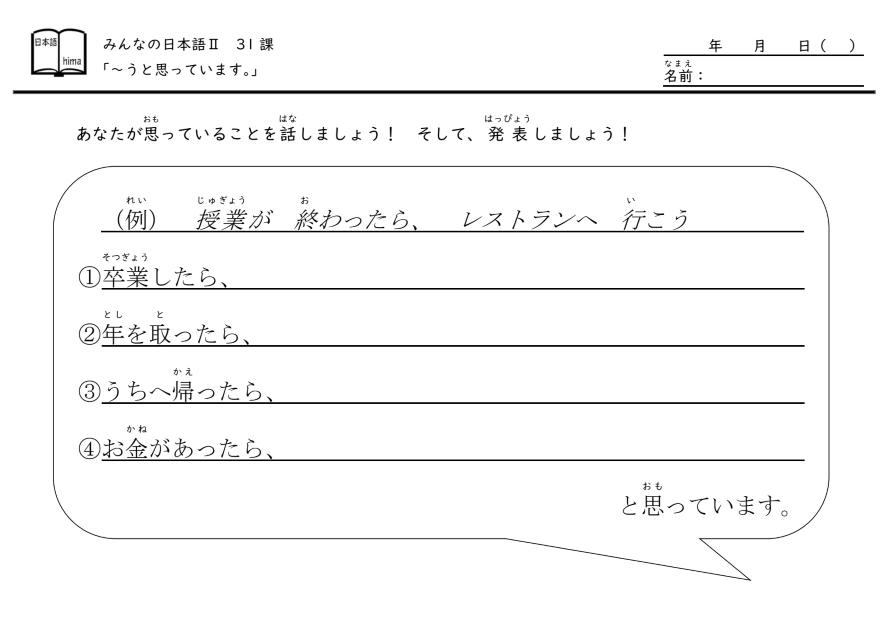 日本語
hima
みんなの日本語Ⅱ 31課
「～うと思っています。」
年 月 日( )
なまえ
名前：
おも はな はっぴょう
あなたが思っていることを話しましょう！ そして、発表しましょう！
れい じゅぎょう お い
(例) 授業が 終わったら、 レストランへ 行こう
そつぎょう
①卒業したら、
とし と
②年を取ったら、
かえ
③うちへ帰ったら、
かね
④お金があったら、
おも
と思っています。